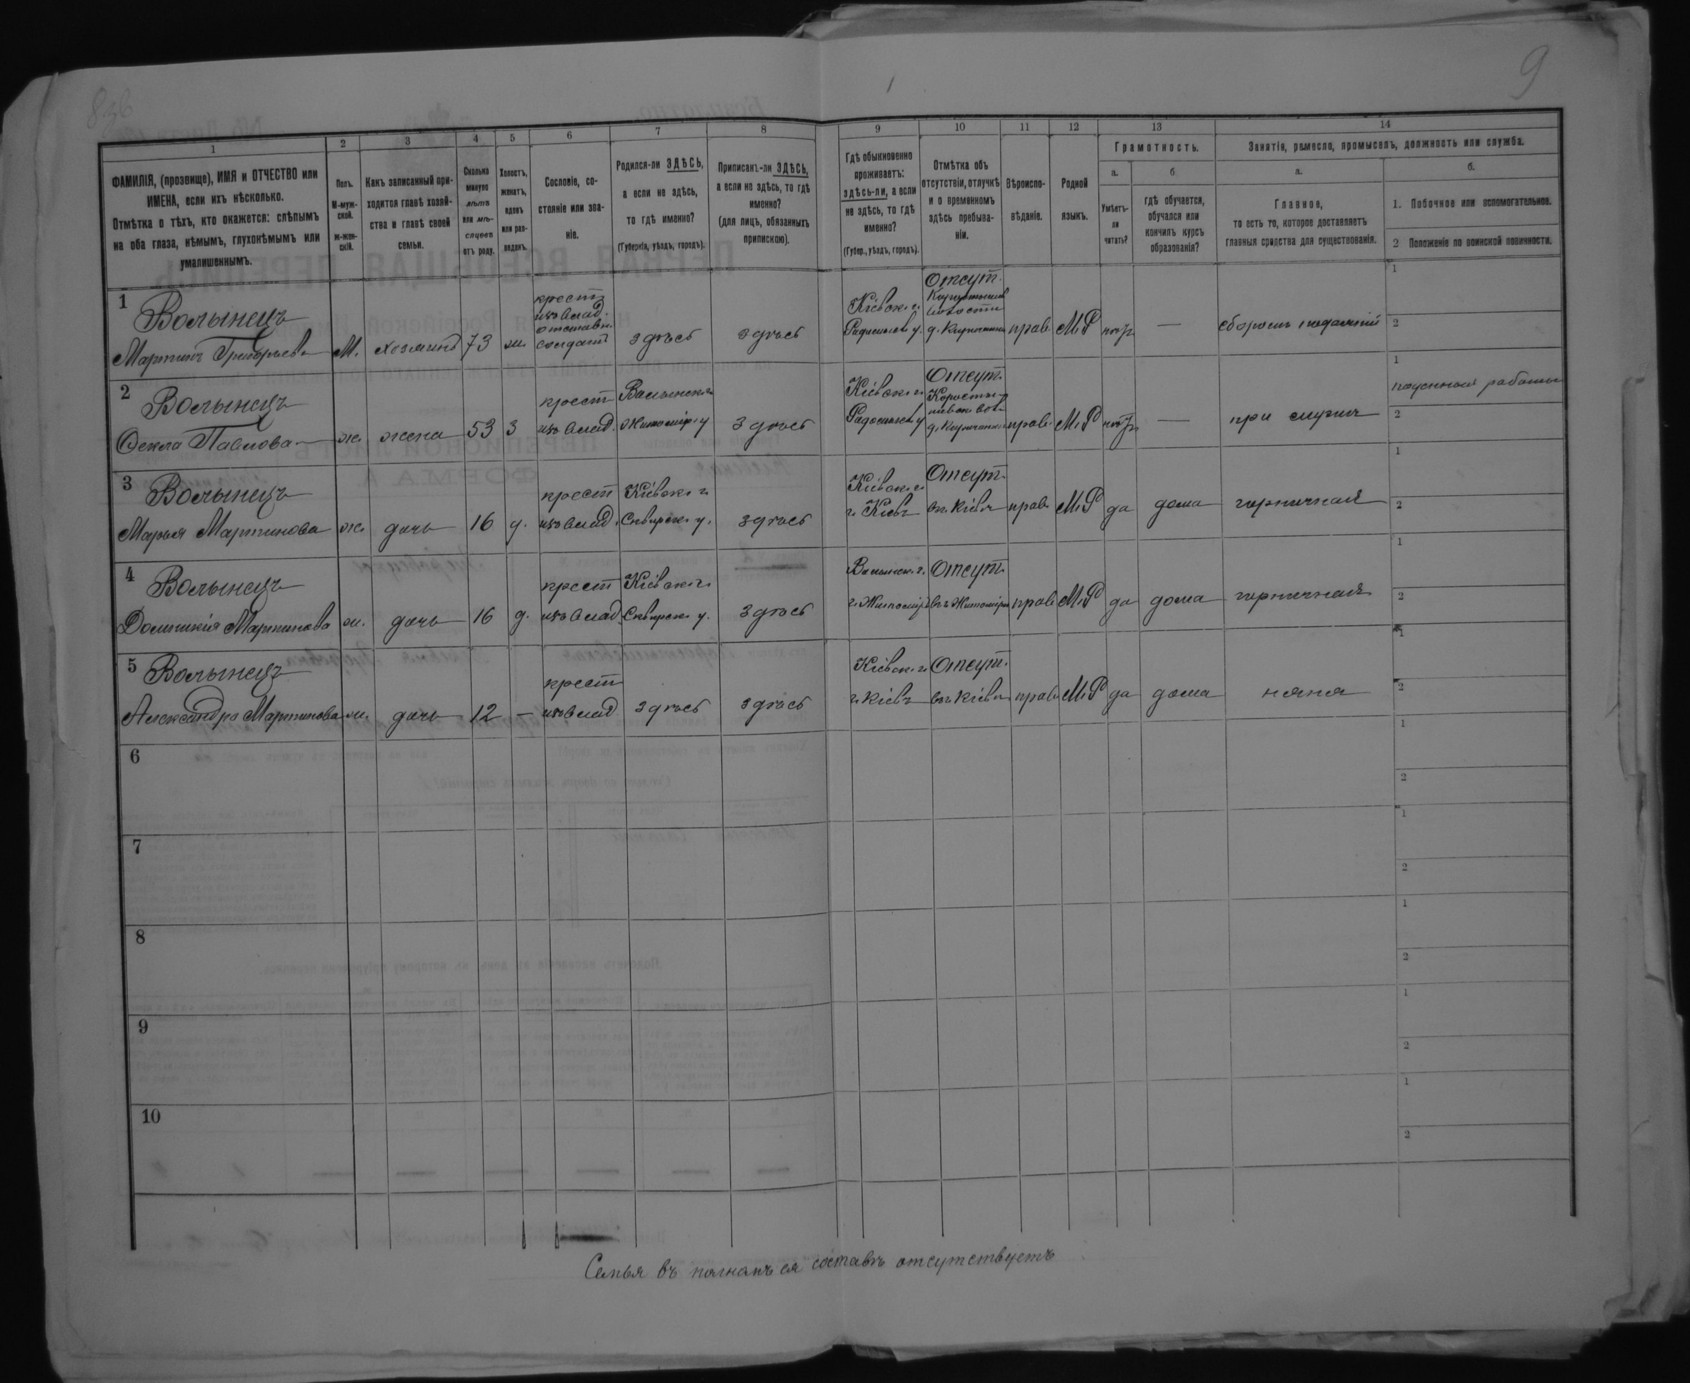 836
9
1 2 3 4 5 6 7 8 9 10 11 12 13 14
ФАМИЛІЯ, (прозвище), ИМЯ и ОТЧЕСТВО или ИМЕНА, если ихъ нѣсколько.
Отмѣтка о тѣхъ, кто окажется: слѣпымъ на оба глаза, нѣмымъ, глухонѣмымъ или умалишеннымъ.
Полъ. М-мужской. ж-женскій.
Какъ записанный приходится главѣ хозяйства и главѣ своей семьи.
Сколько минуло лѣтъ или мѣсяцевъ отъ роду.
Холостъ, женатъ, вдовъ или разведенъ.
Сословіе, состояніе или званіе.
Родился-ли ЗДѢСЬ, а если не здѣсь, то гдѣ именно?
(Губернія, уѣздъ, городъ).
Приписанъ-ли ЗДѢСЬ, а если не здѣсь, то гдѣ именно?
(для лицъ, обязанныхъ припискою).
Гдѣ обыкновенно проживаетъ: здѣсь-ли, а если не здѣсь, то гдѣ именно?
(Губер., уѣздъ, городъ).
Отмѣтка объ отсутствіи, отлучкѣ и о временномъ здѣсь пребываніи.
Вѣроисповѣданіе.
Родной языкъ.
Грамотность.
а. Умѣетъ-ли читать?
б. гдѣ обучается, обучался или кончилъ курсъ образованія?
Занятія, ремесло, промыселъ, должность или служба.
а. Главное, то есть то, которое доставляетъ главныя средства для существованія.
б.
1. Побочное или вспомогательное.
2 Положеніе по воинской повинности.
1 Волынецъ Мартинъ Григорьевъ М. хозяинъ 73 ж. крест. изъ влад. отставн. солдатъ здѣсь здѣсь Кіевск. г. Радомысл. у. Отсут. прав. М.Р нѣтъ — сборомъ подаяній 1 2
2 Волынецъ Ѳекла Павлова ж. жена 53 з крест изъ влад. Волынск. г. Житомір. у здѣсь Кіевск. г. Радомысл. у Отсут. прав. М.Р нѣтъ — при мужѣ 1 поденная работа 2
3 Волынецъ Марья Мартинова ж. дочь 16 д. крест изъ влад. Кіевск. г. Сквирск. у. здѣсь Кіевск. г. г. Кіевъ Отсут. въ Кіевѣ прав. М.Р да дома горничная 1 2
4 Волынецъ Домникія Мартинова ж. дочь 16 д. крест изъ влад. Кіевск. г. Сквирск. у. здѣсь Волынск. г. г. Житомір Отсут. въ Житомірѣ прав М.Р да дома горничная 1 2
5 Волынецъ Александра Мартинова ж. дочь 12 — крест изъ влад здѣсь здѣсь Кіевск. г. г. Кіевъ Отсут. въ Кіевѣ прав М.Р да дома няня 1 2
6 1 2
7 1 2
8 1 2
9 1 2
10 1 2
Семья въ полномъ ея составѣ отсутствуетъ